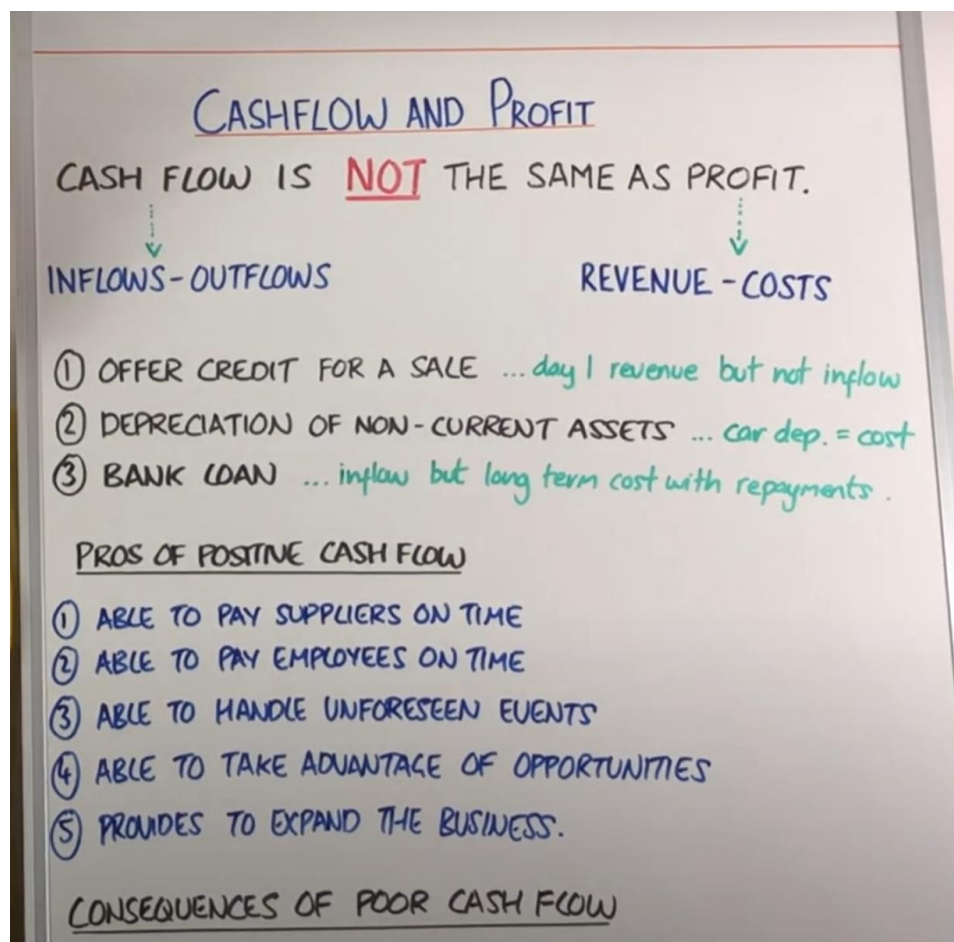 CASHFLOW AND PROFIT
CASH FLOW IS NOT THE SAME AS PROFIT.
INFLOWS - OUTFLOWS REVENUE - COSTS
① OFFER CREDIT FOR A SALE ... day 1 revenue but not inflow
② DEPRECIATION OF NON-CURRENT ASSETS ... car dep. = cost
③ BANK LOAN ... inflow but long term cost with repayments.
PROS OF POSITIVE CASH FLOW
① ABLE TO PAY SUPPLIERS ON TIME
② ABLE TO PAY EMPLOYEES ON TIME
③ ABLE TO HANDLE UNFORESEEN EVENTS
④ ABLE TO TAKE ADVANTAGE OF OPPORTUNITIES
⑤ PROVIDES TO EXPAND THE BUSINESS.
CONSEQUENCES OF POOR CASH FLOW